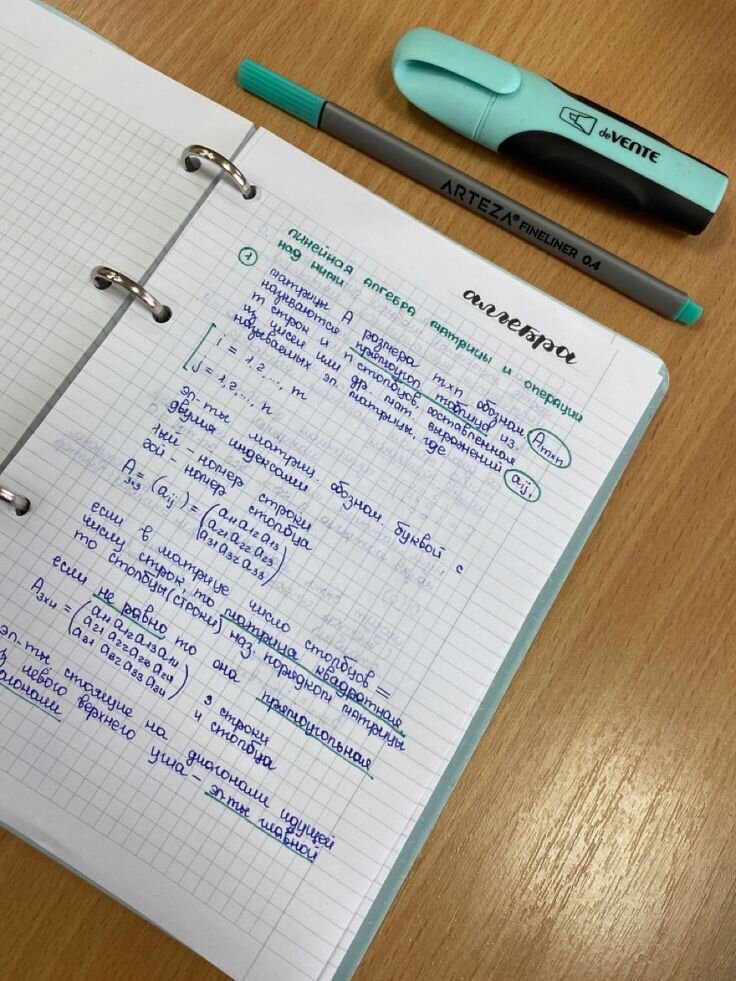 deVENTE
ARTEZA® FINELINER 0.4
алгебра
линейная алгебра матрицы и операции
над ними
1 матрицы A размера m×n обознач. Am×n
называются прямоугол таблица из
m строк и n столбцов, составленная
из чисел или др. мат. выражений aij,
называемых эл. матрицы, где
i = 1,2,..., m
j = 1,2,..., n
эл-ты матриц. обознач. буквой с
двумя индексами
1ый – номер строки
2ой – номер столбца
A3×3 = (aij) = (a11 a12 a13
a21 a22 a23
a31 a32 a33)
если в матрице число столбцов =
числу строк, то матрица квадратная,
то столбцы(строки) наз. порядком матрицы
если не равно то она прямоугольная
A3×4 = (a11 a12 a13 a14
a21 a22 a23 a24
a31 a32 a33 a34)
3 строки
4 столбца
эл-ты стоящие на диагонали идущей
из левого верхнего угла – эл-ты главной